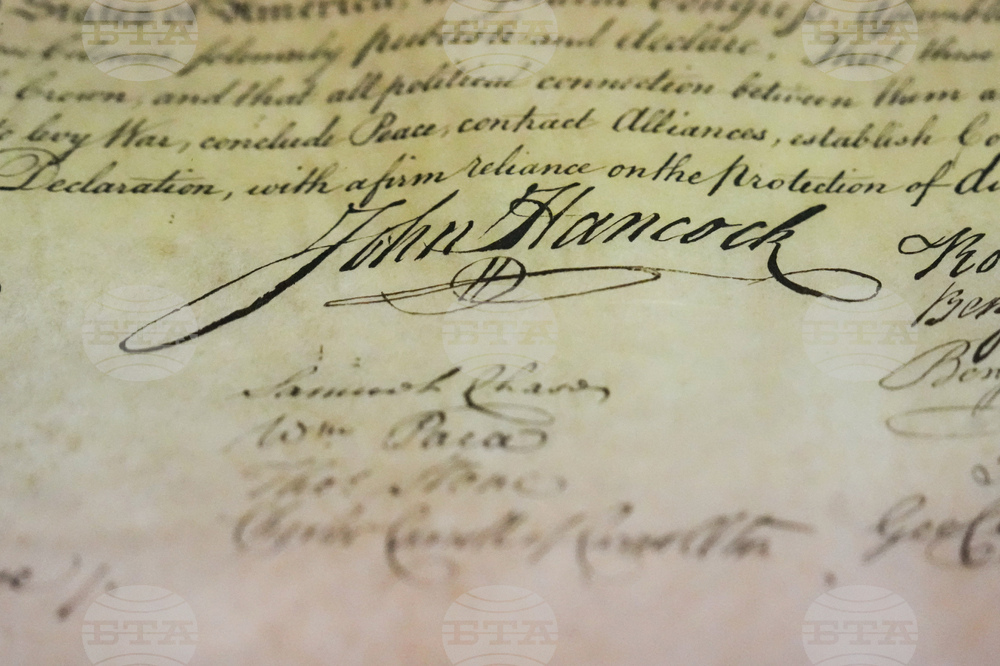 of America, in General Congress, Assembled
solemnly publish and declare. That these
Crown, and that all political connection between them a
levy War, conclude Peace, contract Alliances, establish Co
Declaration, with a firm reliance on the protection of di
John Hancock
Samuel Chase
Wm Paca
Thos Stone
Charles Carroll of Carrollton
Ro
Ben
Benj
Geo C
БТА